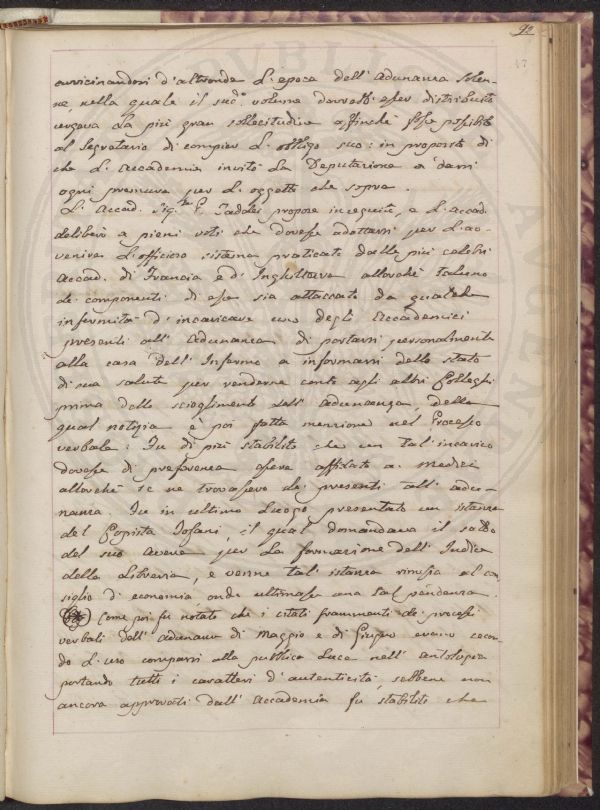 92
avvicinandosi d'altronde L'epoca dell'adunanza solen-
ne, nella quale il sudo. volume dovrebb'esser distribuito
usando La più gran sollecitudine affinchè fosse possibile
al Segretario di compier L'obbligo suo: in proposito di
che L'Accademia invitò La Deputazione a darsi
ogni premura per L'oggetto che sopra.
L'Accad. Sig. G. Taddei propose in seguito, e L'accad.
deliberò a pieni voti che dovesse adottarsi per L'av-
venire L'officioso sistema praticato dalle più celebri
Accad. di Francia e d'Inghilterra allorchè taluno
de' componenti di esse sia attaccato da qualche
infermità d'incaricare uno degli Accademici
presenti all'Adunanza di portarsi personalmente
alla casa dell'Infermo a informarsi dello stato
di sua salute per renderne conto agli altri Colleghi
prima dello scioglimento dell'adunanza, della
qual notizia è poi fatta menzione nel Processo
verbale: Fu di più stabilito che un tal'incarico
dovesse di preferenza essere affidato a' medici
allorchè se ne trovassero de' presenti all'adu-
nanza. Fu in ultimo Luogo presentato un istanza
del Copista Tofani, il qual domandava il saldo
del suo avere per La formazione dell'Indice
della Libreria, e venne tal'istanza rimessa al con-
siglio d'economia onde ultimasse una tal pendenza.
Come poi fu notato che i citati frammenti de' processi
verbali dell'adunanze di Maggio e di Giugno erano secon-
do L'uso comparsi alla pubblica Luce nell'antologia
portando tutti i caratteri d'autenticità, sebbene non
ancora approvati dall'Accademia fu stabilito che